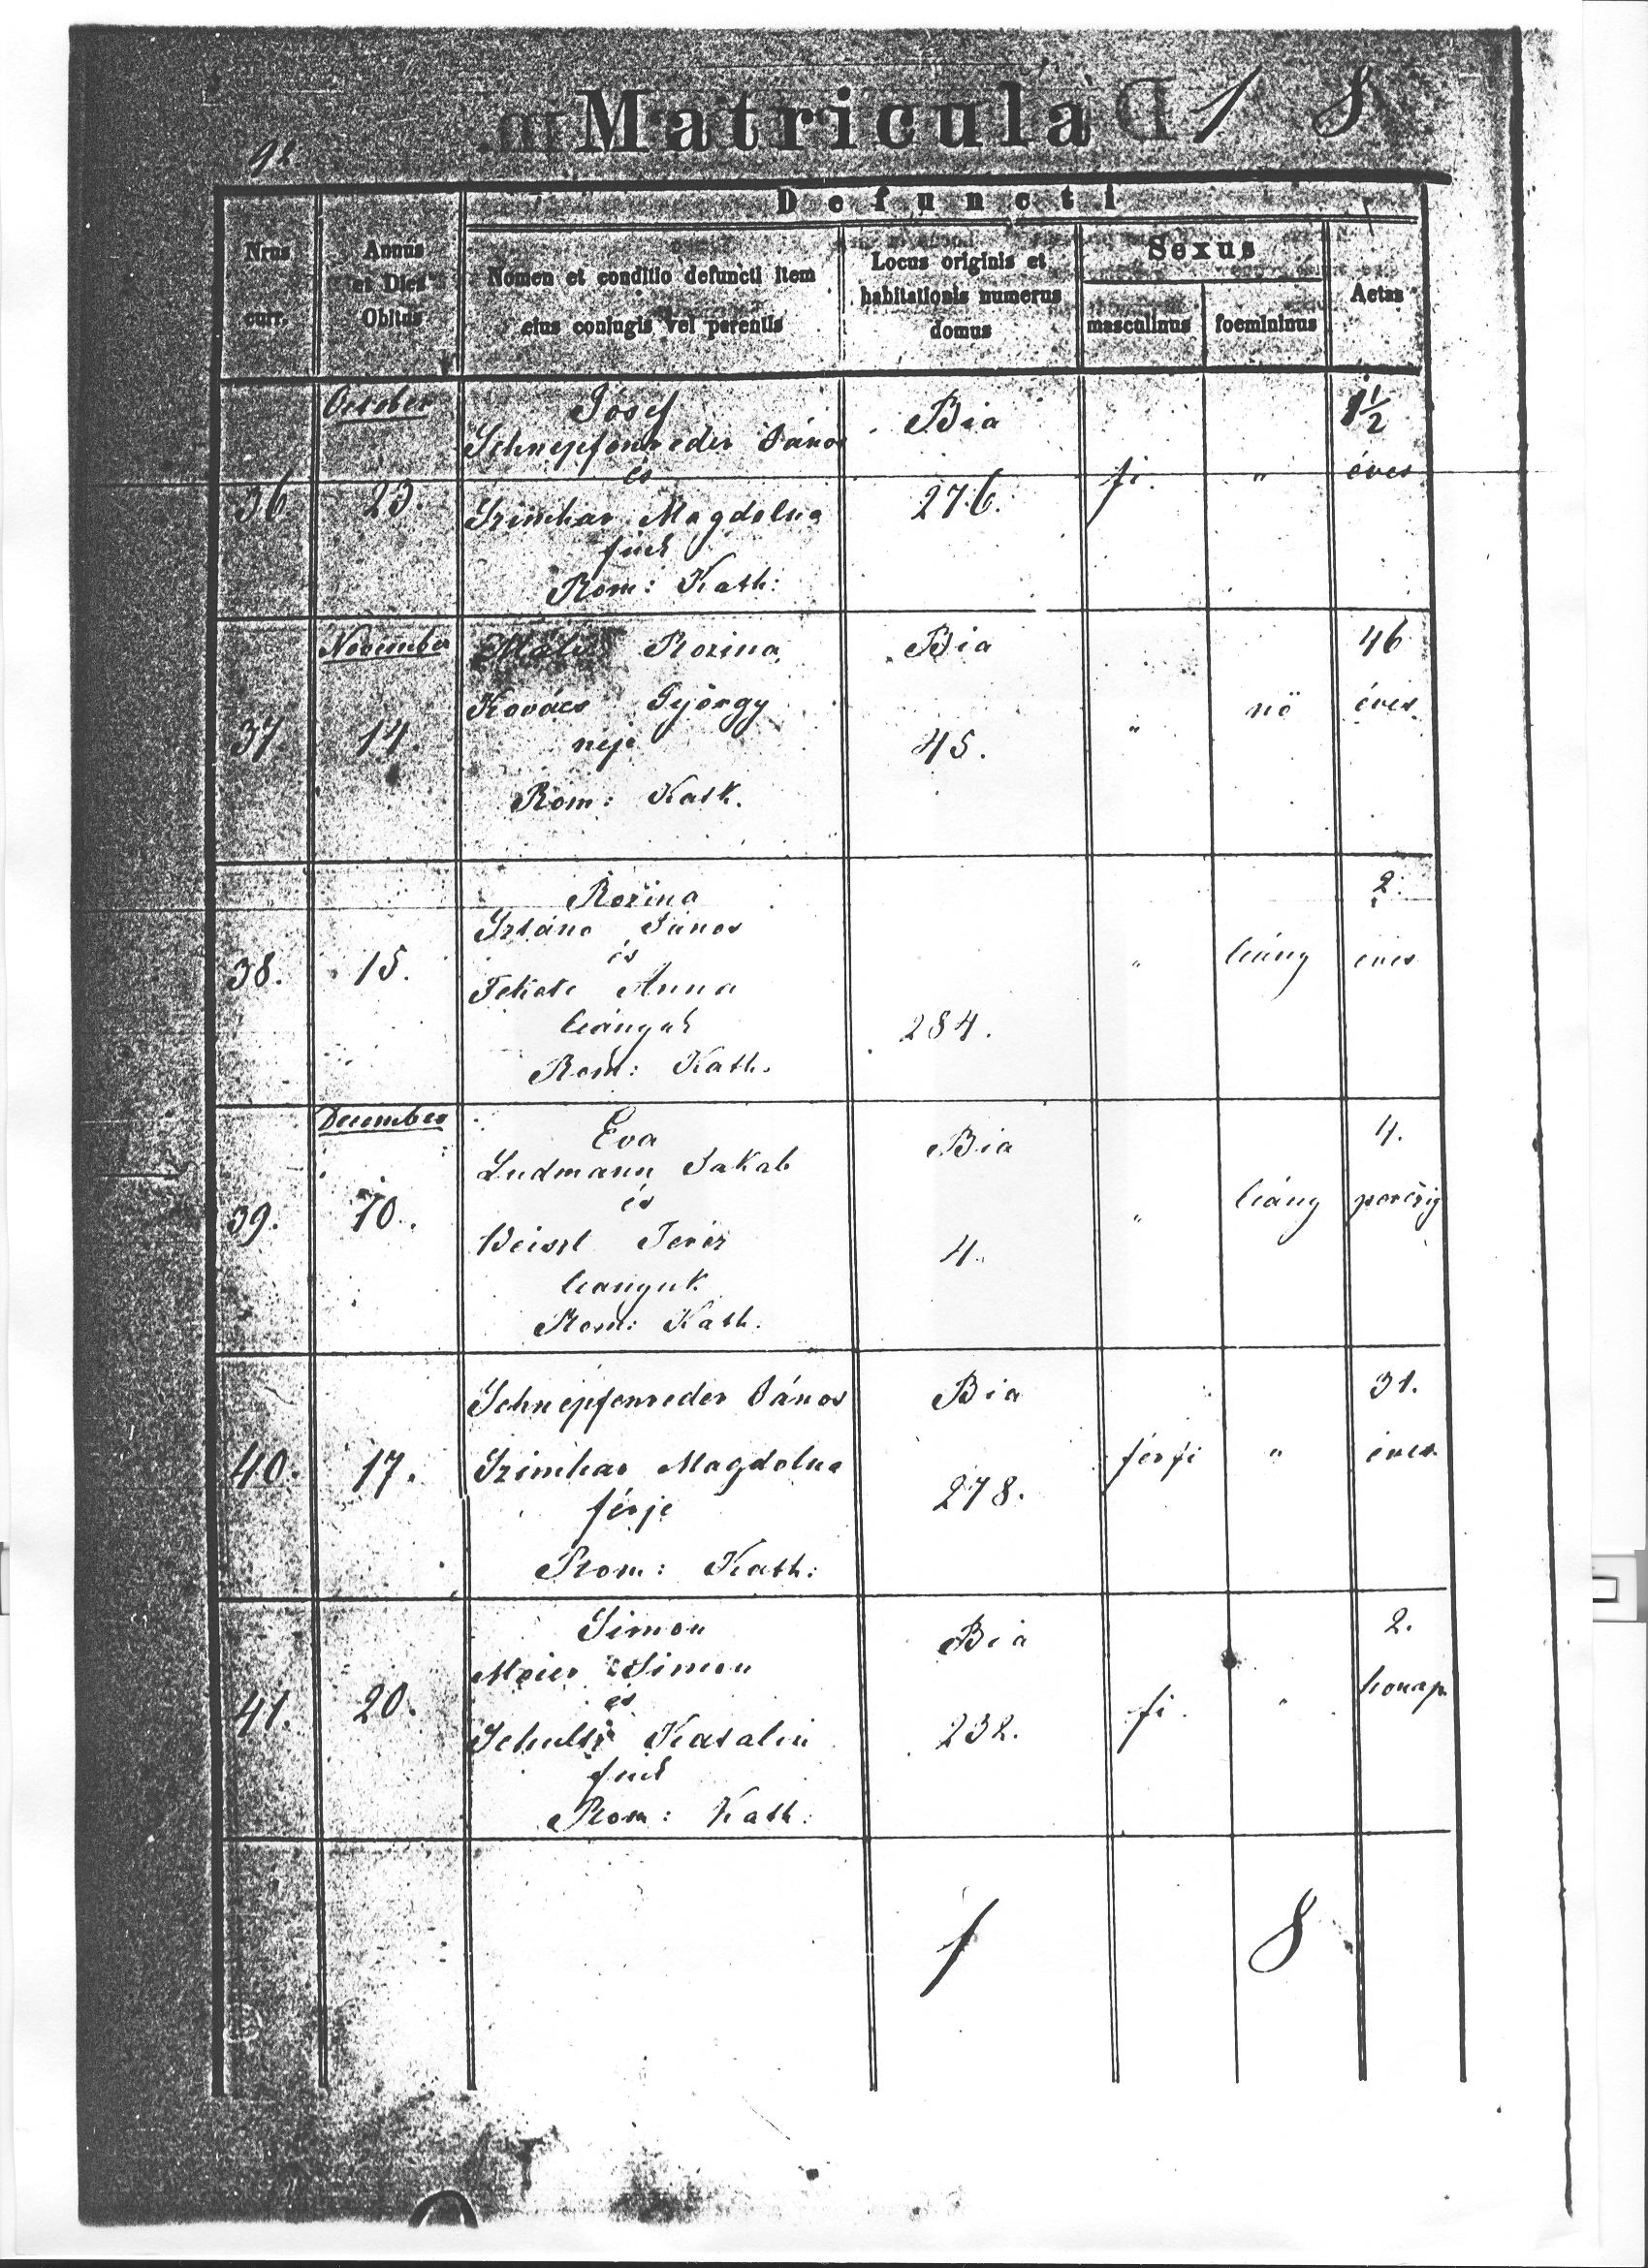 Matricula 1 8
Defuncti
Nrus curr.
Annus et Dies Obitus
Nomen et conditio defuncti item eius coniugis vel parentis
Locus originis et habitationis numerus domus
Sexus
masculinus
foemininus
Aetas
October
36
23.
Jósef
Schnepfenreder János
és
Szimhar Magdolna
fiuk
Rom: Kath:
Bia
276.
fi.
"
1 1/2
éves
November
37
14
Rozina
Kovács György
neje
Rom: Kath.
Bia
45.
"
nö
46
éves
38.
15.
Rozina
János
és
Fekete Anna
leányuk
Rom: Kath.
284.
"
leány
2.
éves
December
39.
10.
Eva
Ludmann Jakab
és
Weiszl Teréz
leanyuk
Rom: Kath.
Bia
4.
"
leány
4.
perczig
40.
17.
Schnepfenreder János
Szimhar Magdolna
férje
Rom: Kath:
Bia
278.
férfi
"
31.
éves
41.
20.
Simon
Meier Simon
és
Schultz Katalin
fiuk
Rom: Kath:
Bia
232.
fi.
"
2.
honap
1 8